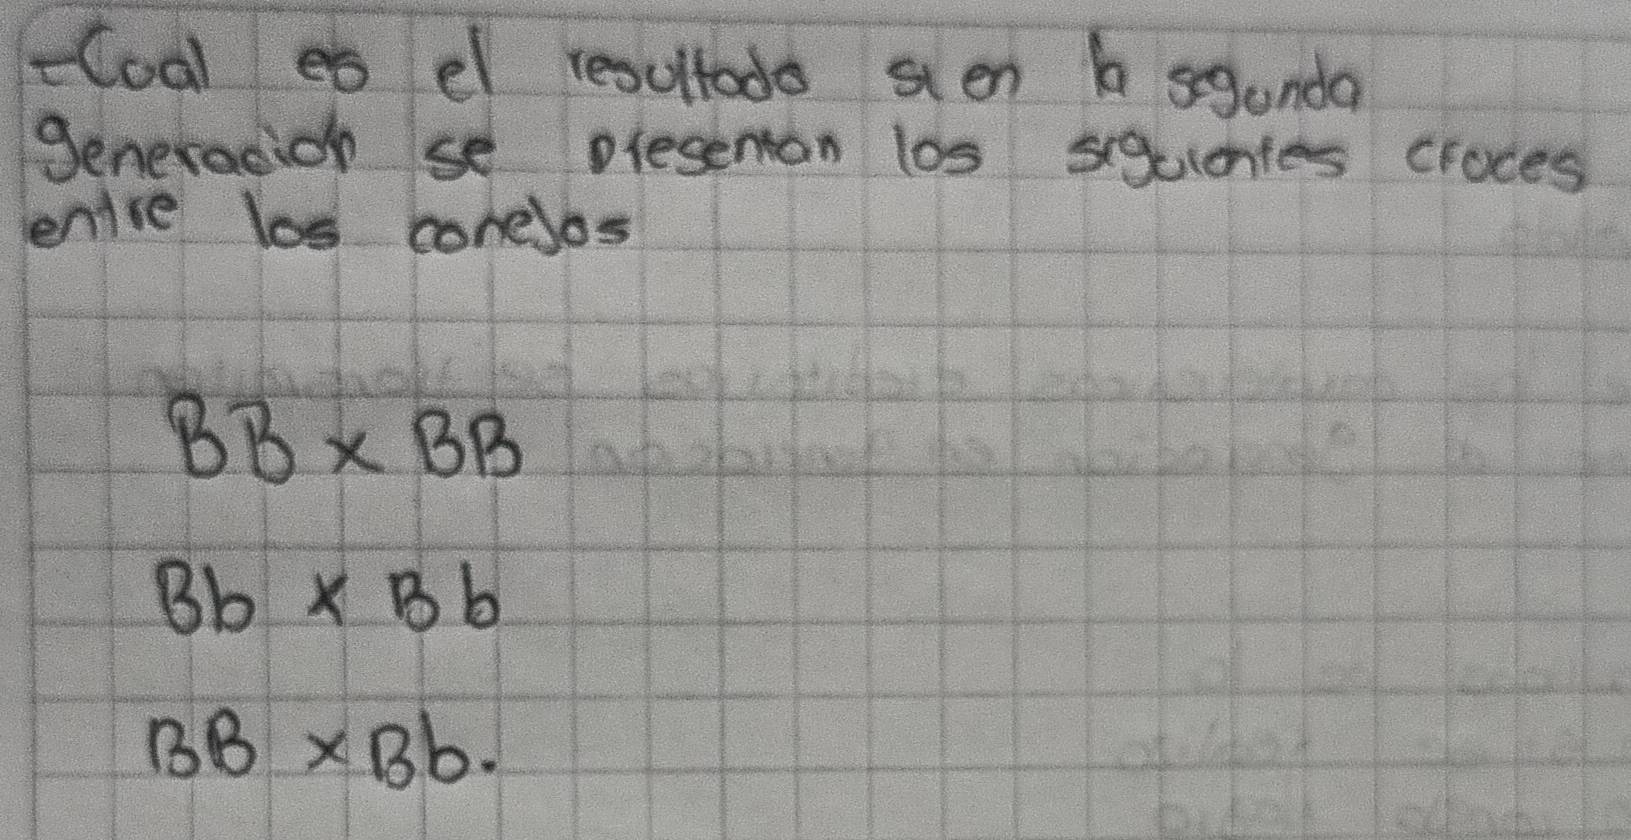 -Cual es el resultado si en la segunda
generación se presentan los siguientes cruces
entre los conejos
BB x BB
Bb x Bb
BB x Bb.